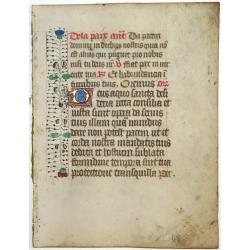 De la paix ant. Da pacem
domine in diebus nostris quia nō
est alius qui pugnet pro nobis
nisi tu deus nr̄. V Fiat pax in uir
tute tua. R Et habundancia ī
turribus tuis. Oremus
Deus a quo sancta desi
deria recta consilia et
iusta sunt opera da seruis
tuis illam quam mundus
dare non potest pacem ut et
corda nostra mandatis tuis
dedita et hostium sublata
formidine tempora sint tua
protectione tranquilla Per.